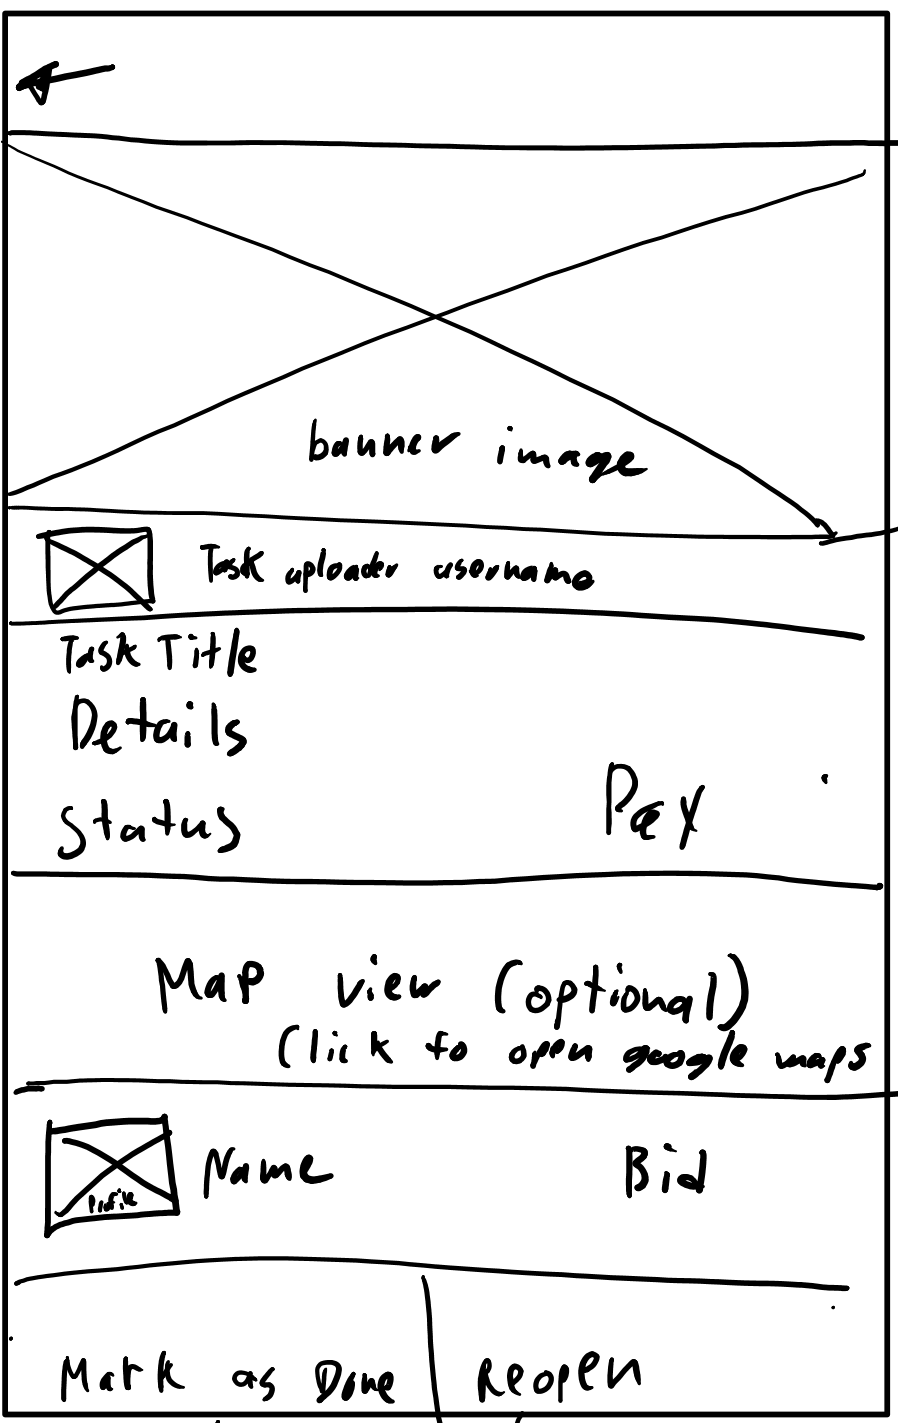 banner image
Task uploader username
Task Title
Details
Status
Pay
Map view (optional)
Click to open google maps
Profile
Name
Bid
Mark as Done
Reopen